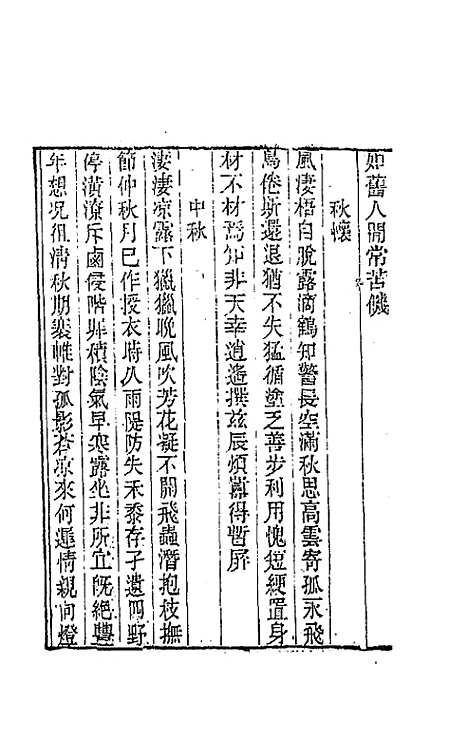 如舊人開常苦饑
秋懷
風悽梧自脫露滴鶴知警長空滿秋思高雲寄孤永飛
鳥倦斯還退猶不失猛循塗乏善步利用愧短綆置身
材不材焉知非天幸逍遙撰兹辰煩囂得暫屏
中秋
淒淒凉露下獵獵晚風吹芳花凝不開飛蟲潛抱枝撫
節仲秋月已作授衣時久雨隄防失禾黍存孑遺四野
停潢潦斥鹵侵階墀積陰氣早寒露坐非所宜旣絕豐
年想况徂清秋期褰帷對孤影蒼凉來何遲情親向燈